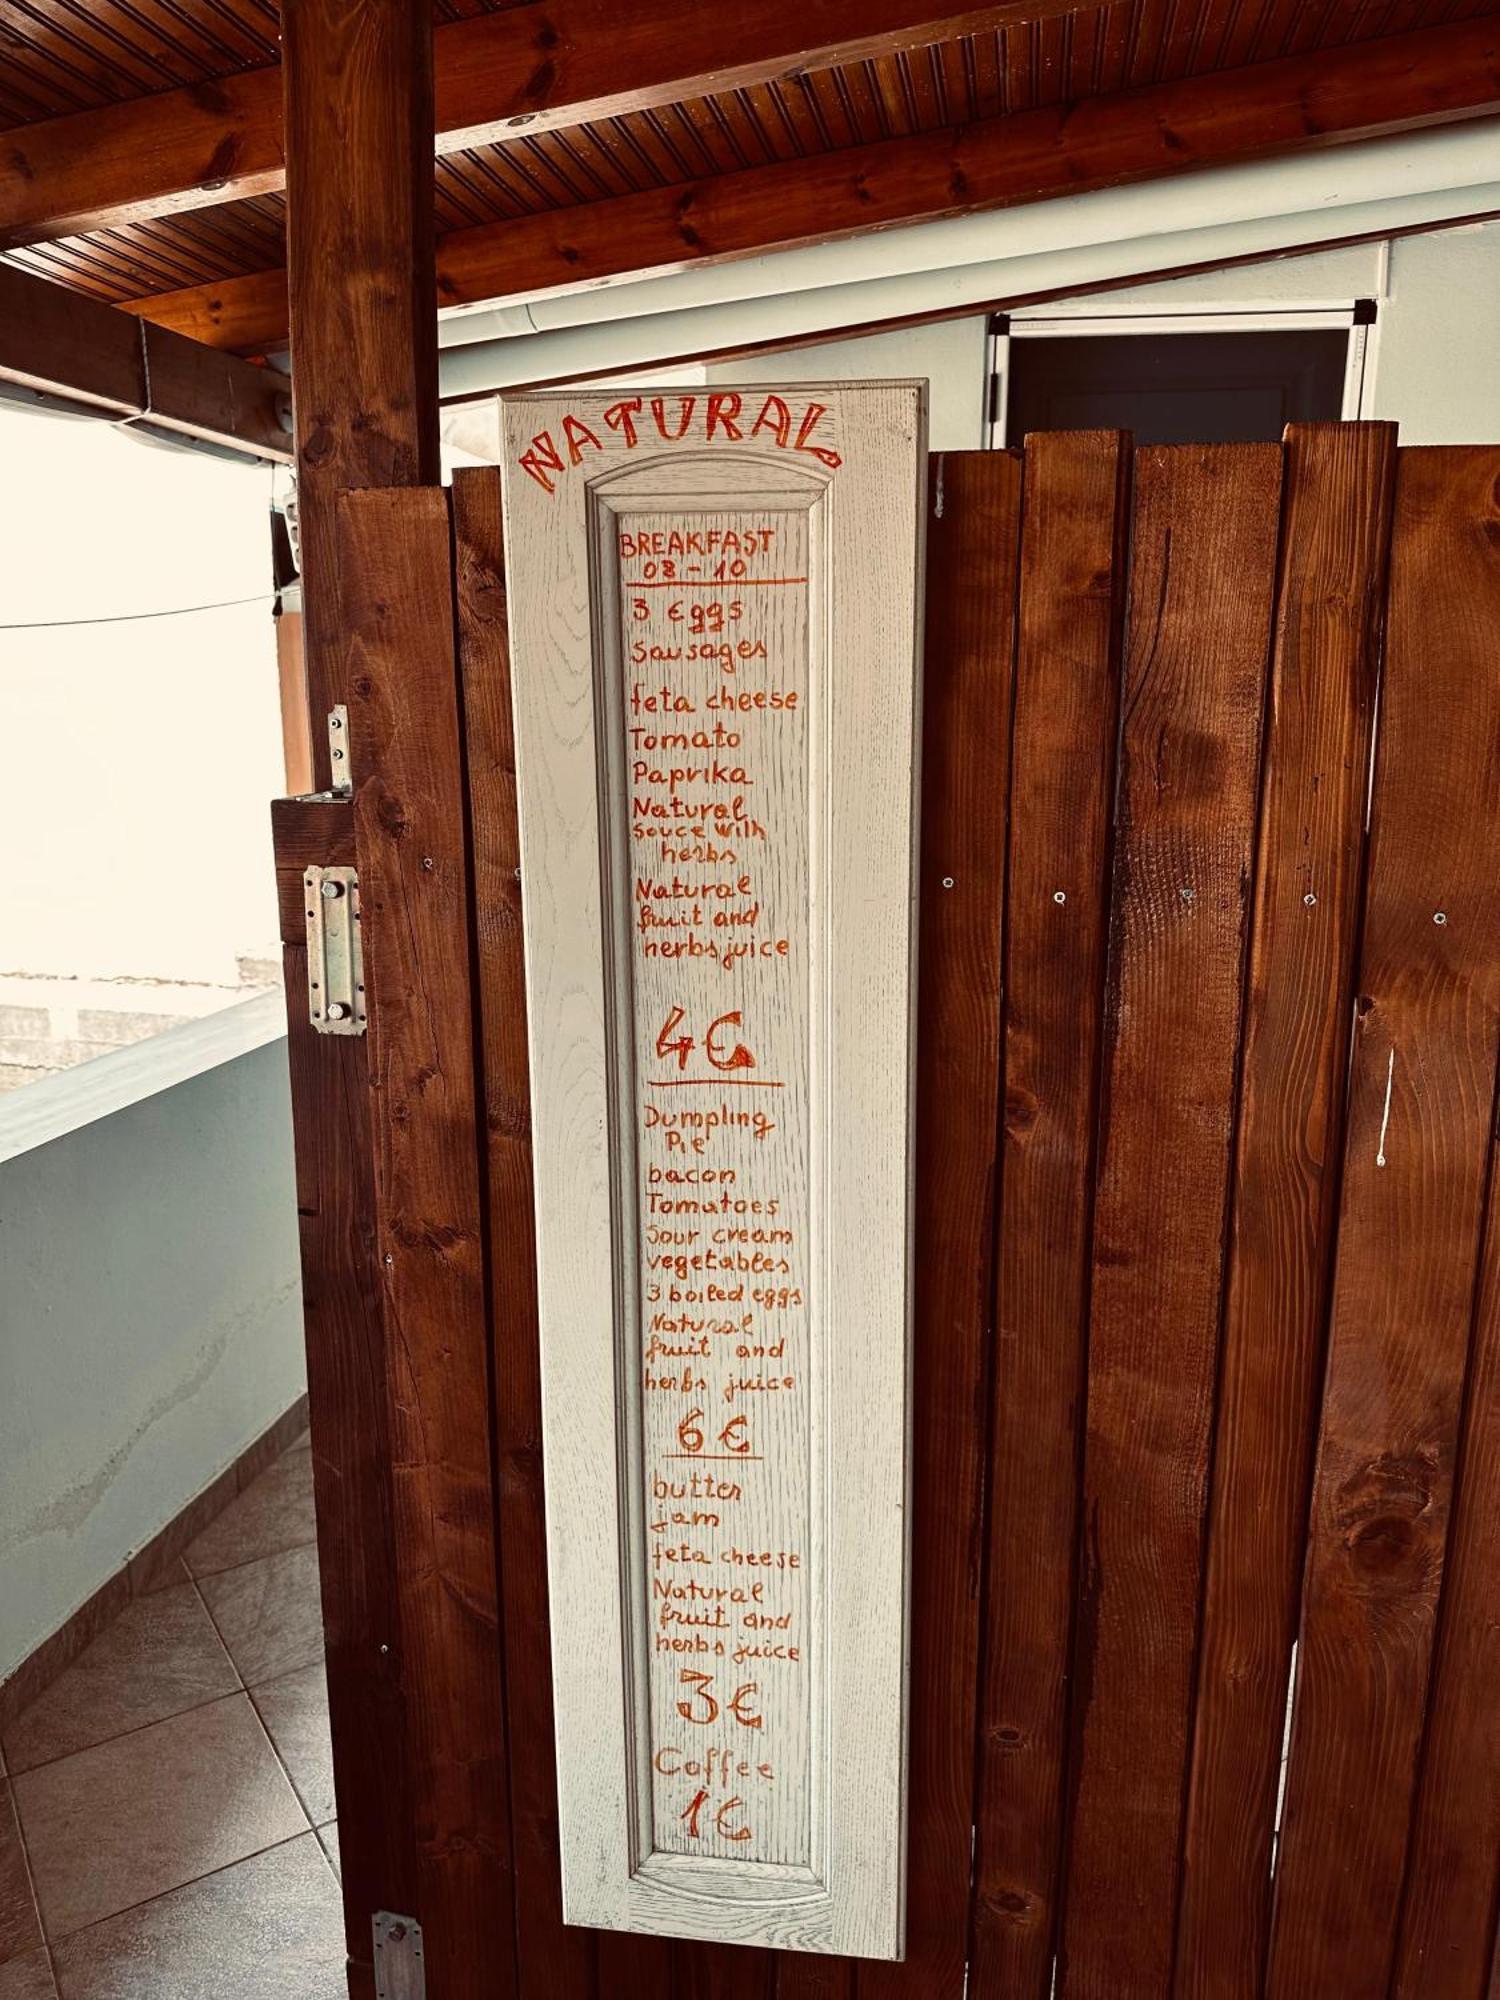 NATURAL
BREAKFAST
08 - 10
3 Eggs
Sausages
feta cheese
Tomato
Paprika
Natural
souce with
herbs
Natural
fruit and
herbs juice
4€
Dumpling
Pie
bacon
Tomatoes
Sour cream
vegetables
3 boiled eggs
Natural
fruit and
herbs juice
6€
butter
jam
feta cheese
Natural
fruit and
herbs juice
3€
Coffee
1€